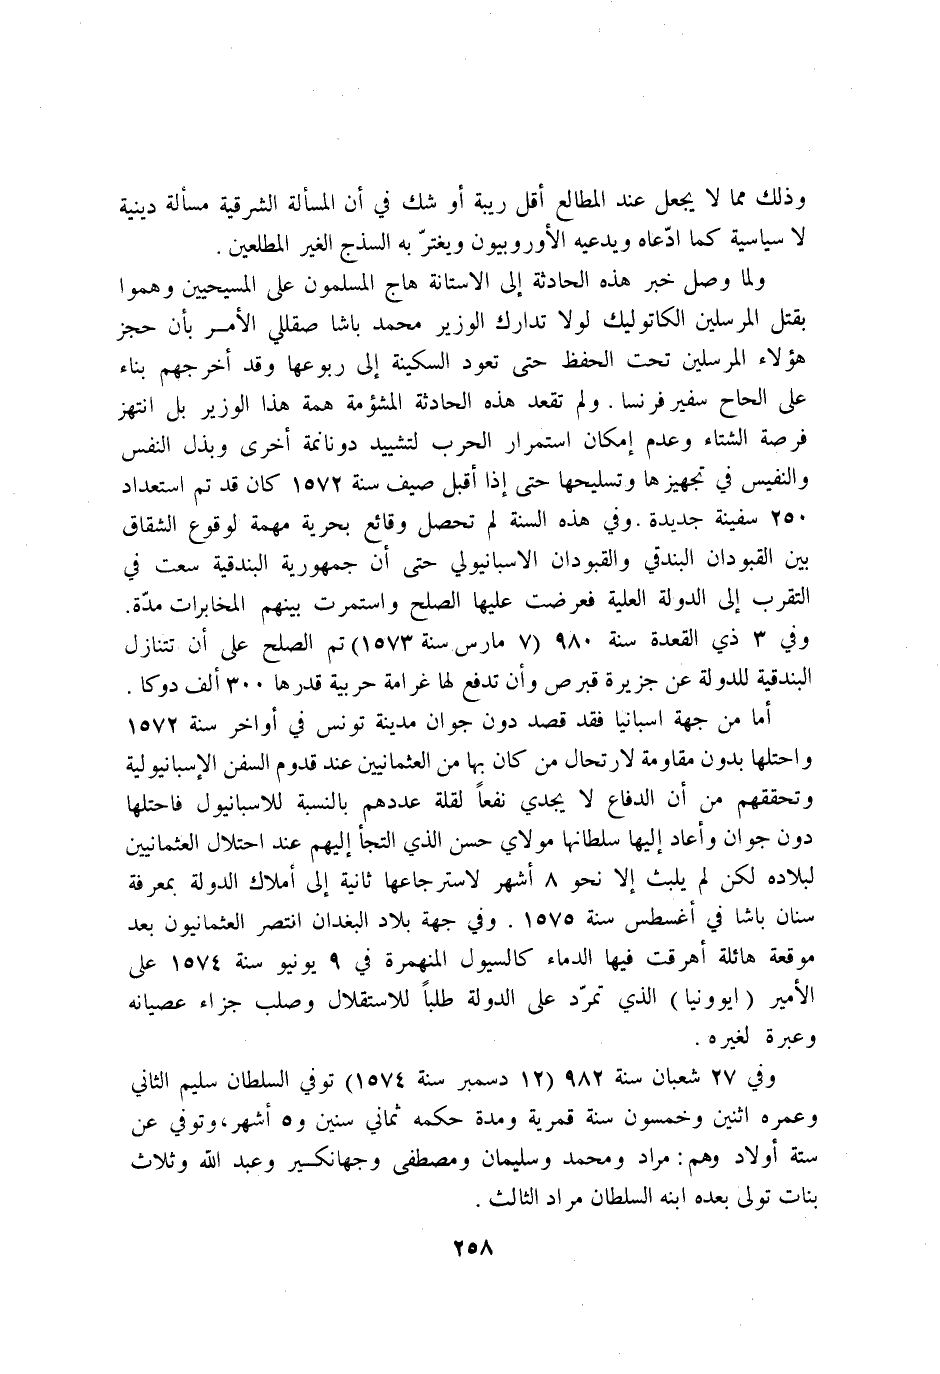 وذلك مما لا يجعل عند المطالع أقل ريبة أو شك في أن المسألة الشرقية مسألة دينية
لا سياسية كما ادّعاه ويدعيه الأوروبيون ويغترّ به السذج الغير المطلعين .
ولما وصل خبر هذه الحادثة إلى الاستانة هاج المسلمون على المسيحيين وهموا
بقتل المرسلين الكاتوليك لولا تدارك الوزير محمد باشا صقللي الأمر بأن حجز
هؤلاء المرسلين تحت الحفظ حتى تعود السكينة إلى ربوعها وقد أخرجهم بناء
على الحاح سفير فرنسا . ولم تقعد هذه الحادثة المشؤمة همة هذا الوزير بل انتهز
فرصة الشتاء وعدم إمكان استمرار الحرب لتشييد دونانمة أخرى وبذل النفس
والنفيس في تجهيزها وتسليحها حتى إذا أقبل صيف سنة ١٥٧٢ كان قد تم استعداد
٢٥٠ سفينة جديدة . وفي هذه السنة لم تحصل وقائع بحرية مهمة لوقوع الشقاق
بين القبودان البندقي والقبودان الاسبانيولي حتى أن جمهورية البندقية سعت في
التقرب إلى الدولة العلية فعرضت عليها الصلح واستمرت بينهم المخابرات مدّة.
وفي ٣ ذي القعدة سنة ٩٨٠ (٧ مارس سنة ١٥٧٣) تم الصلح على أن تتنازل
البندقية للدولة عن جزيرة قبرص وأن تدفع لها غرامة حربية قدرها ٣٠٠ ألف دوكا .
أما من جهة اسبانيا فقد قصد دون جوان مدينة تونس في أواخر سنة ١٥٧٢
واحتلها بدون مقاومة لارتحال من كان بها من العثمانيين عند قدوم السفن الإسبانيولية
وتحققهم من أن الدفاع لا يجدي نفعاً لقلة عددهم بالنسبة للاسبانيول فاحتلها
دون جوان وأعاد إليها سلطانها مولاي حسن الذي التجأ إليهم عند احتلال العثمانيين
لبلاده لكن لم يلبث إلا نحو ٨ أشهر لاسترجاعها ثانية إلى أملاك الدولة بمعرفة
سنان باشا في أغسطس سنة ١٥٧٥ . وفي جهة بلاد البغدان انتصر العثمانيون بعد
موقعة هائلة أهرقت فيها الدماء كالسيول المنهمرة في ٩ يونيو سنة ١٥٧٤ على
الأمير ( ايوونيا ) الذي تمرّد على الدولة طلباً للاستقلال وصلب جزاء عصيانه
وعبرة لغيره .
وفي ٢٧ شعبان سنة ٩٨٢ (١٢ دسمبر سنة ١٥٧٤) توفي السلطان سليم الثاني
وعمره اثنين وخمسون سنة قمرية ومدة حكمه ثماني سنين و٥ أشهر، وتوفي عن
ستة أولاد وهم : مراد ومحمد وسليمان ومصطفى وجهانكير وعبد الله وثلاث
بنات تولى بعده ابنه السلطان مراد الثالث .
٢٥٨